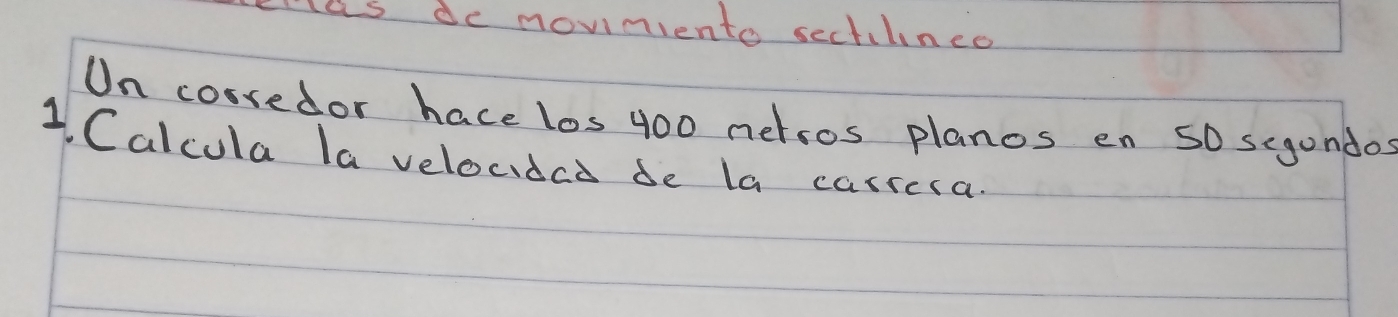 de movimiento rectilineo
Un corredor hace los 400 metros planos en 50 segundos
1. Calcula la velocidad de la carrera.